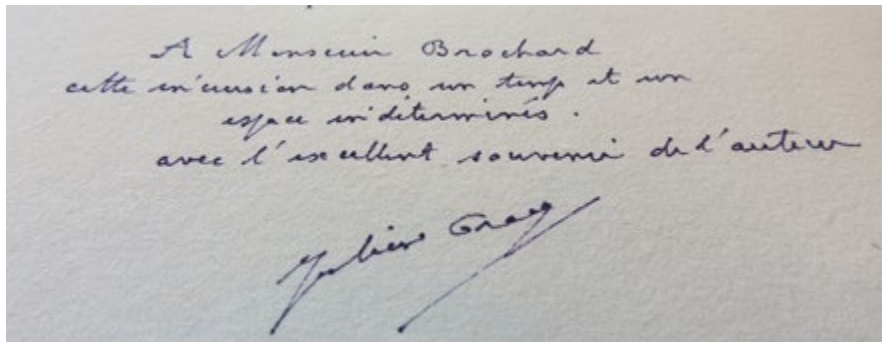 A Monsieur Brochard
cette incursion dans un temps et un
espace indéterminés.
avec l'excellent souvenir de l'auteur
Julien Gracq